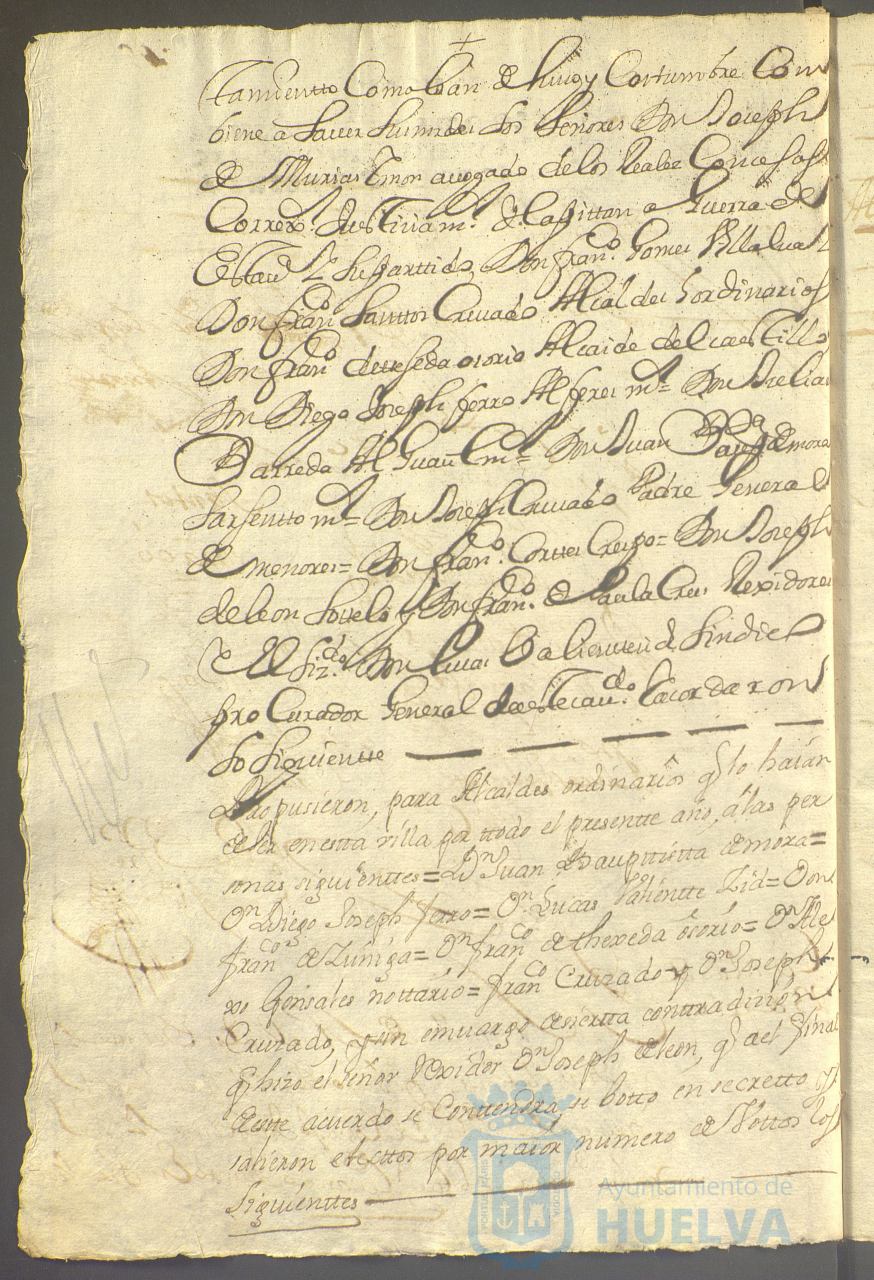 +
tamientto Como lo an de huso y Costumbre Con
biene a Saver Sumrdes los Señores Don Joseph
de Murias Avogado de los Reales Consejos
Correxor. Justizia mr. & Capittan a Guerra de
Esta vª y su parttido, Don franco. Gomes Villalva
Don franco Santtos Cruzado Alcaldes hordinarios
Don franco de texeda osorio Alcaide del Casttillo
Don Diego Joseph ferro Alferes mor= Don
Barreda Alguacil mor= Don Juan Baupta de mora
Sarsentto mr= Don Joseph Cruzado Padre General
de menores= Don franco. Corttes Crespo= Don Joseph
de leon Sottelo y Don franco. de Paula Rexidores
el Lizdo. Don lucas Balientte Zid Sindico
pro Curador General de este cavdo. & acordaron
lo Siguientte
Propusieron, para Alcaldes ordinarios q lo haian
de ser en estta villa por ttodo el presentte año, á las per
sonas siguienttes= Dn Juan Baupttistta de mora=
Dn Diego Joseph ferro= Dn Lucas Valientte Zid= Don
franco de Zuñiga= Dn franco de thexeda ósorio= Dn Ale
xo Gonsales nottario= franco Cruzado y Dn Joseph
Cruzado, y sin emvargo de siertta conttradizión
q hizo el señor Rexidor Dn Joseph de leon, q a el final
de estte acuerdo se Conttendra, se botto en secretto y
salieron electtos por maior numero de Vottos los
Siguienttes
Ayuntamiento de
HUELVA